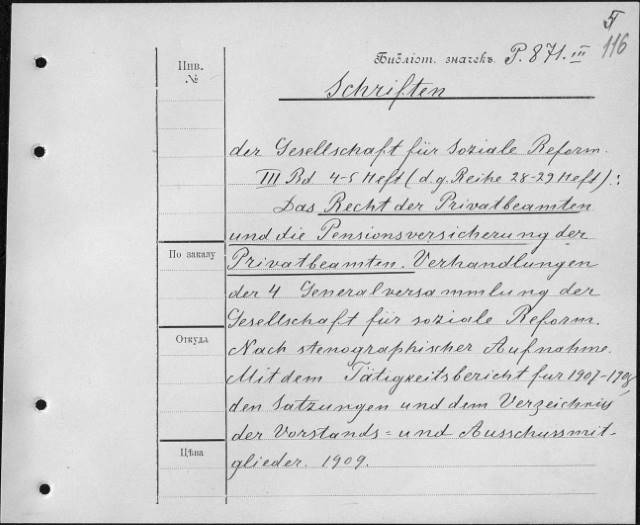 5
116
Инв.
№
Библіот. значекъ P. 871. III
Schriften
der Gesellschaft für soziale Reform.
III Bd 4-5 Heft (d. g. Reihe 28-29 Heft):
Das Recht der Privatbeamten
und die Pensionsversicherung der
По заказу
Privatbeamten. Verhandlungen
der 4 Generalversammlung der
Gesellschaft für soziale Reform.
Откуда
Nach stenographischer Aufnahme.
Mit dem Tätigkeitsbericht fur 1907-1908,
den Satzungen und dem Verzeichniss
der Vorstands= und Ausschussmit-
Цѣна
glieder. 1909.